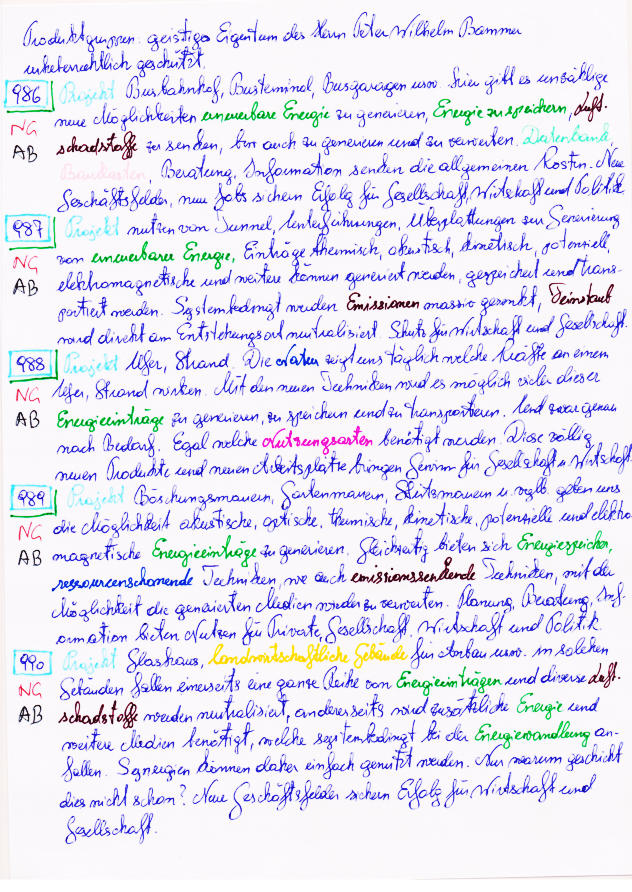 Produktgruppen. geistiges Eigentum des Herrn Peter Wilhelm Bammer
urheberrechtlich geschützt.
986 Projekt Busbahnhof, Busterminal, Busgaragen usw. hier gibt es unzählige
NG neue Möglichkeiten erneuerbare Energie zu generieren, Energie zu speichern, Luft-
AB schadstoffe zu senken, bzw auch zu generieren und zu verwerten. Datenbank,
Baukasten, Beratung, Information senken die allgemeinen Kosten. Neue
Geschäftsfelder, neue Jobs sichern Erfolg für Gesellschaft, Wirtschaft und Politik.
987 Projekt nutzen von Tunnel, Unterführungen, Überplattungen zur Generierung
NG von erneuerbarer Energie, Einträge thermisch, akustisch, kinetisch, potenziell,
AB elektromagnetische und weitere können generiert werden, gespeichert und trans-
portiert werden. Systembedingt werden Emissionen massiv gesenkt, Feinstaub
wird direkt am Entstehungsort neutralisiert. Schutz für Wirtschaft und Gesellschaft.
988 Projekt Ufer, Strand. Die Natur zeigt uns täglich welche Kräfte an einem
NG Ufer, Strand wirken. Mit den neuen Techniken wird es möglich viele dieser
AB Energieeinträge zu generieren, zu speichern und zu transportieren. Und zwar genau
nach Bedarf. Egal welche Nutzungsarten benötigt werden. Diese völlig
neuen Produkte und neuen Arbeitsplätze bringen Gewinn für Gesellschaft u. Wirtschaft.
989 Projekt Böschungsmauern, Gartenmauern, Stützmauern u. vglb. geben uns
NG die Möglichkeit akustische, optische, thermische, kinetische, potenzielle und elektro-
AB magnetische Energieeinträge zu generieren. Gleichzeitig bieten sich Energiespeicher,
ressourcenschonende Techniken, wie auch emissionssenkende Techniken, mit der
Möglichkeit die generierten Medien wieder zu verwerten. Planung, Beratung, Inf-
ormation bieten Nutzen für Private, Gesellschaft, Wirtschaft und Politik.
990 Projekt Glashaus, landwirtschaftliche Gebäude für Anbau usw. in solchen
NG Gebäuden fallen einerseits eine ganze Reihe von Energieeinträgen und diverse Luft-
AB schadstoffe werden neutralisiert, andererseits wird zusätzliche Energie und
weitere Medien benötigt, welche systembedingt bei der Energiewandlung an-
fallen. Synergien können daher einfach genützt werden. Nur warum geschieht
dies nicht schon? Neue Geschäftsfelder sichern Erfolg für Wirtschaft und
Gesellschaft.